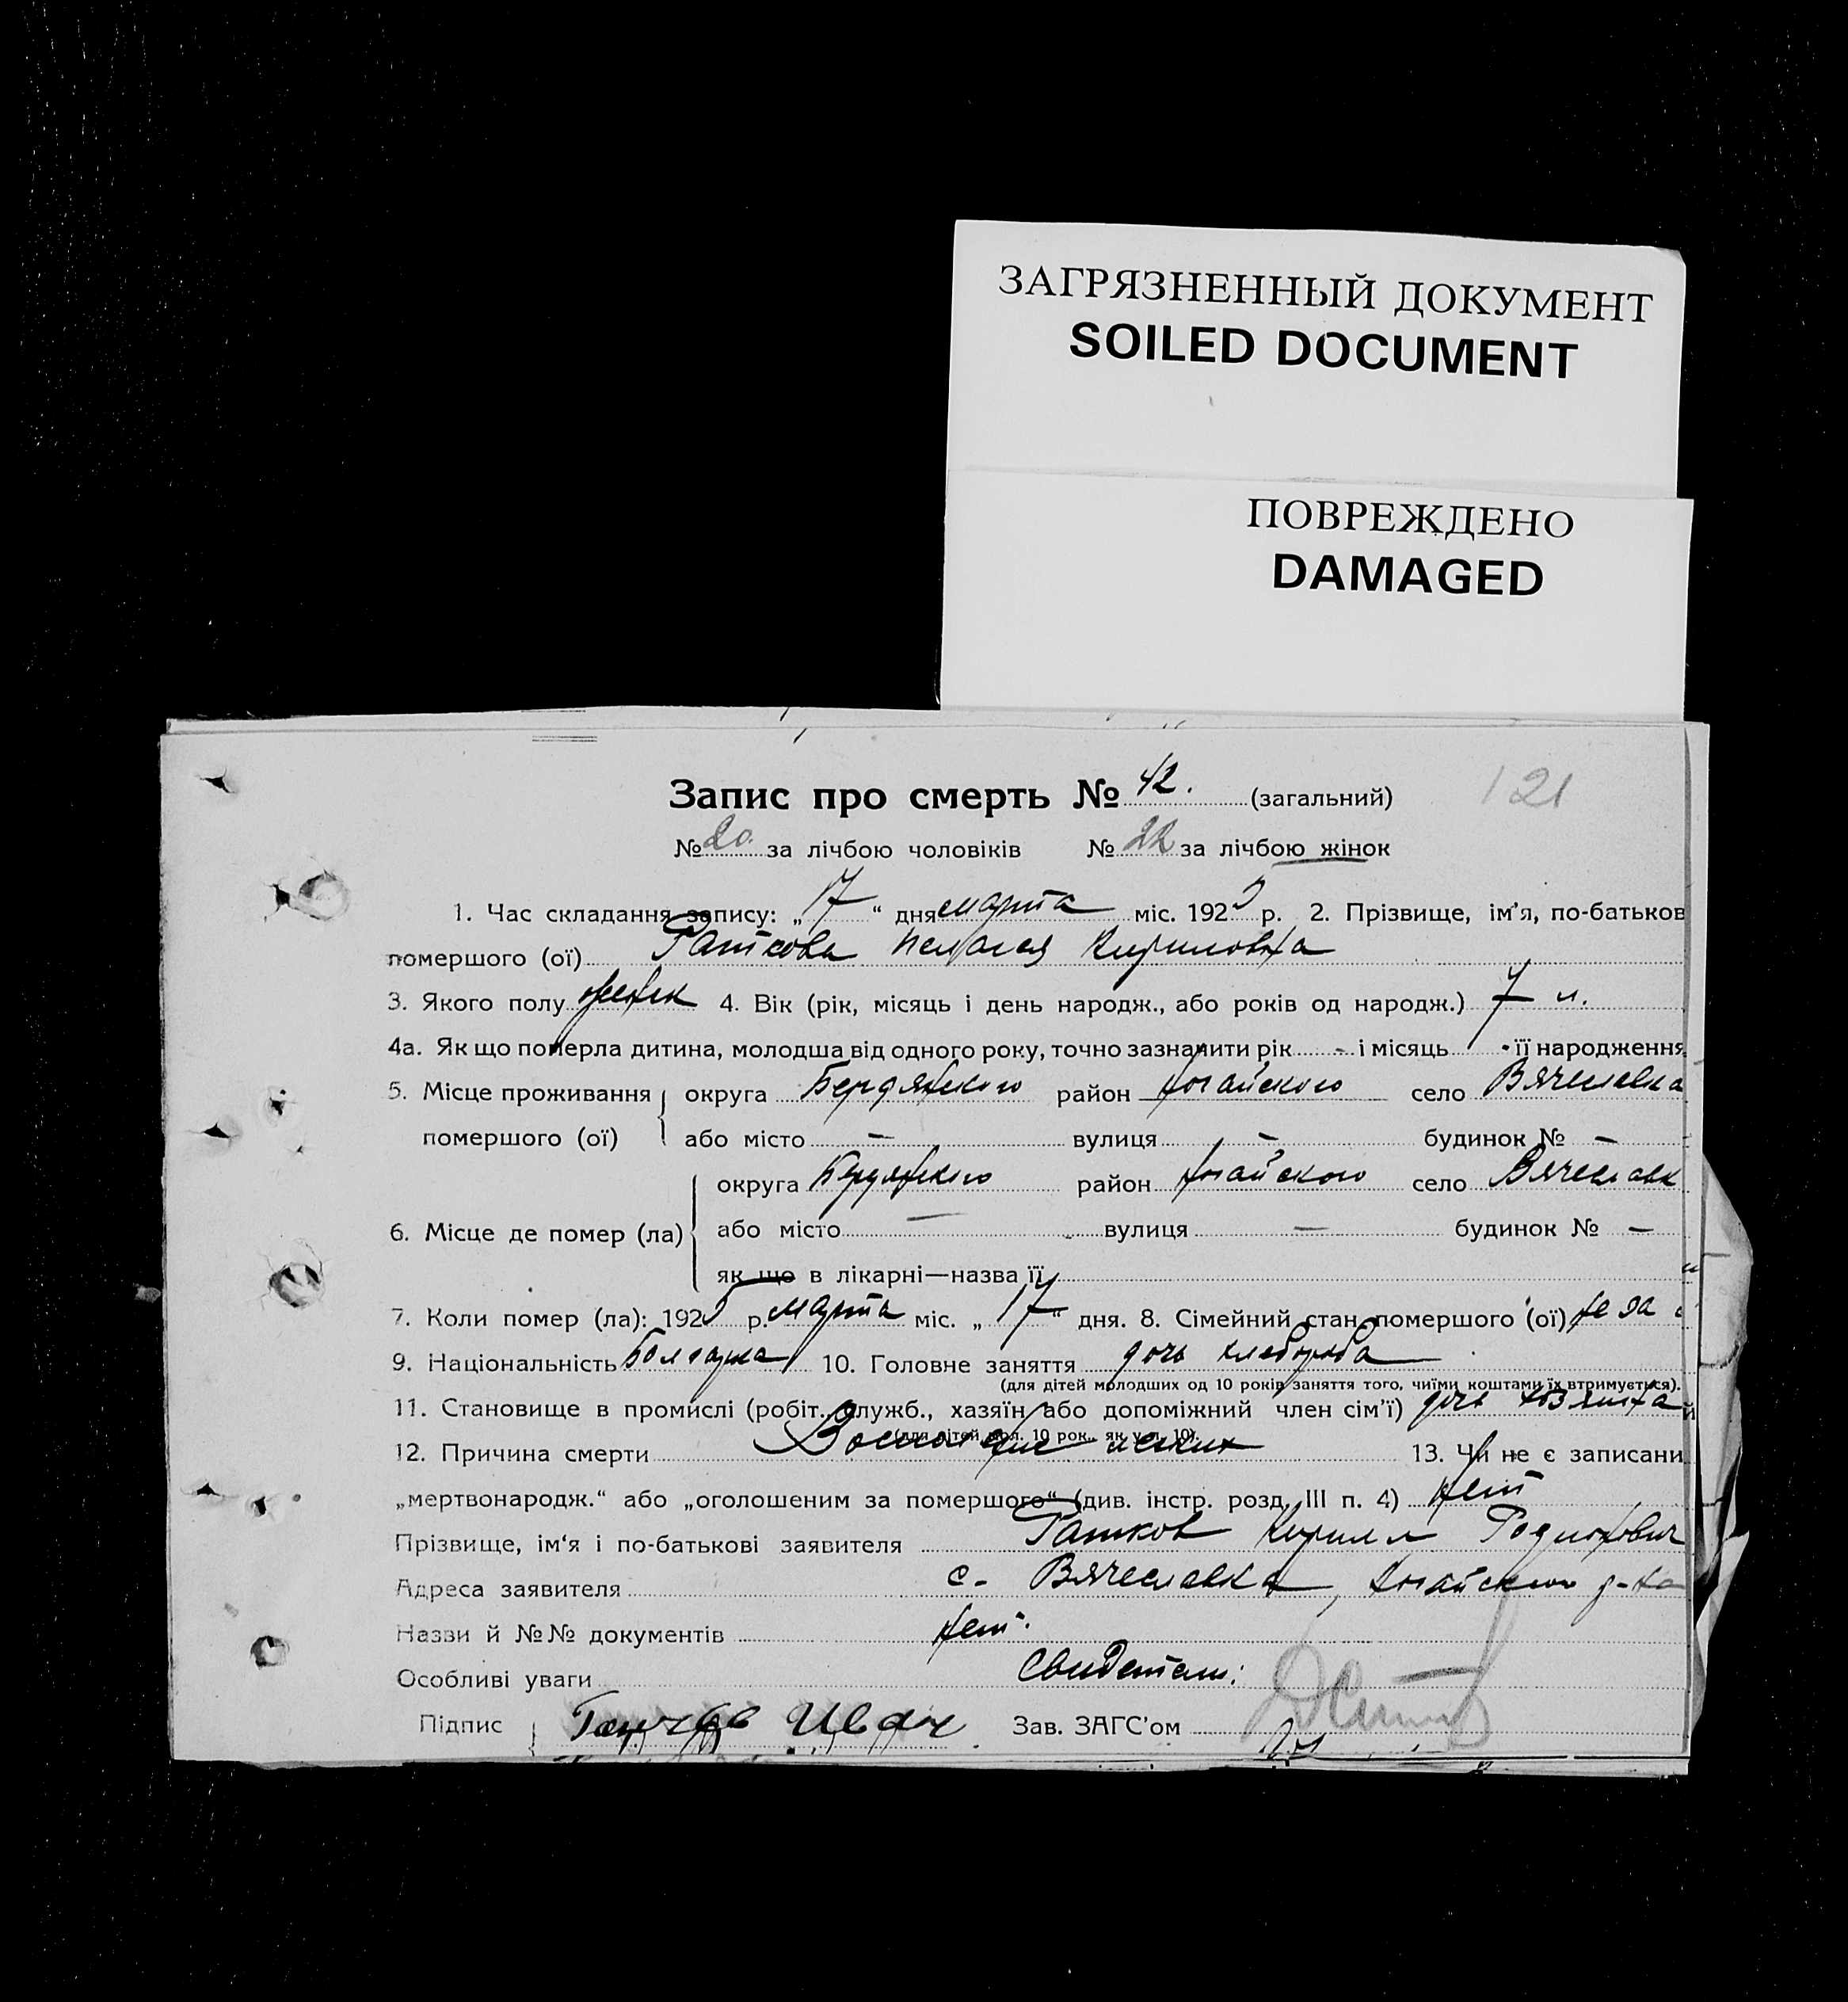 ЗАГРЯЗНЕННЫЙ ДОКУМЕНТ
SOILED DOCUMENT
ПОВРЕЖДЕНО
DAMAGED
121
Запис про смерть № 42. (загальний)
№ 20. за лічбою чоловіків № 22 за лічбою жінок
1. Час складання запису: „17“ дня марта міс. 1925 р. 2. Прізвище, ім’я, по-батьков
помершого (ої) Раткова Пелагея Кириловна
3. Якого полу женск 4. Вік (рік, місяць і день народж., або років од народж.) 7 л.
4а. Як що померла дитина, молодша від одного року, точно зазначити рік - і місяць - її народження
5. Місце проживання помершого (ої) округа Бердянского район Ногайского село Вячеславка
або місто — вулиця — будинок № —
6. Місце де помер (ла) округа Бердянского район Ногайского село Вячеславк
або місто — вулиця — будинок № —
як що в лікарні—назва її
7. Коли помер (ла): 1925 р. марта міс. „17“ дня. 8. Сімейний стан помершого (ої) не за
9. Національність Болгарка 10. Головне заняття дочь хлебороба
(для дітей молодших од 10 років заняття того, чиїми коштами їх втримується).
11. Становище в промислі (робіт., служб., хазяїн або допоміжний член сім’ї) дочь хозяина
(для дітей мол. 10 рок., як у п. 10).
12. Причина смерти Воспаление легких 13. Чи не є записани
„мертвонародж.“ або „оголошеним за помершого“ (див. інстр. розд. III п. 4) Нет
Прізвище, ім‘я і по-батькові заявителя Ратков Кирилл Родионович
Адреса заявителя с. Вячеславка, Ногайского р-на
Назви й №№ документів Нет.
Особливі уваги Свидетели:
Підпис Иван Зав. ЗАГС’ом